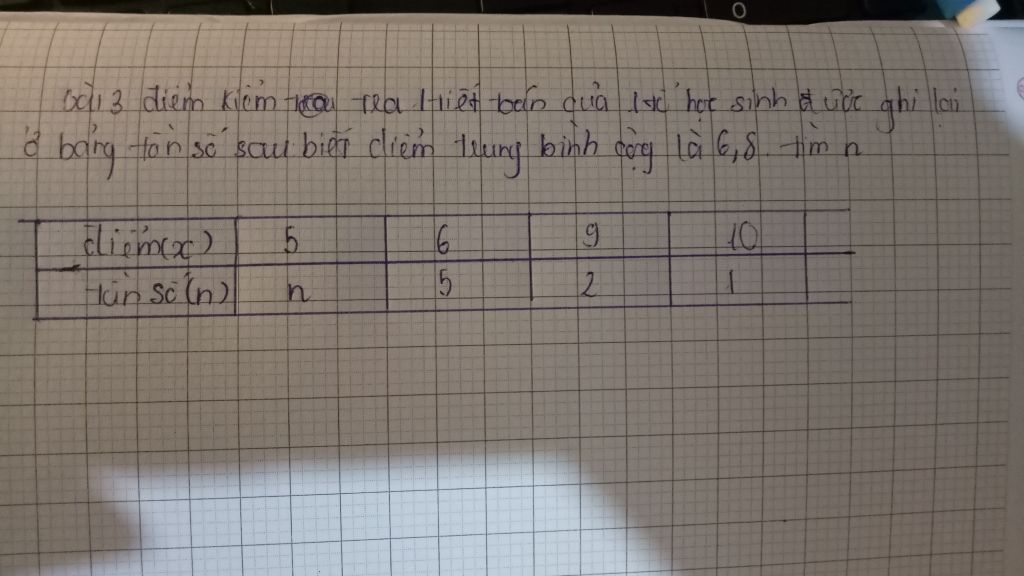 bài 3 điểm kiểm tra 1 tiết toán của 1 tổ học sinh được ghi lại
ở bảng tần số sau biết điểm trung bình cộng là 6,8. tìm n
điểm(x) 5 6 9 10
tần số (n) n 5 2 1